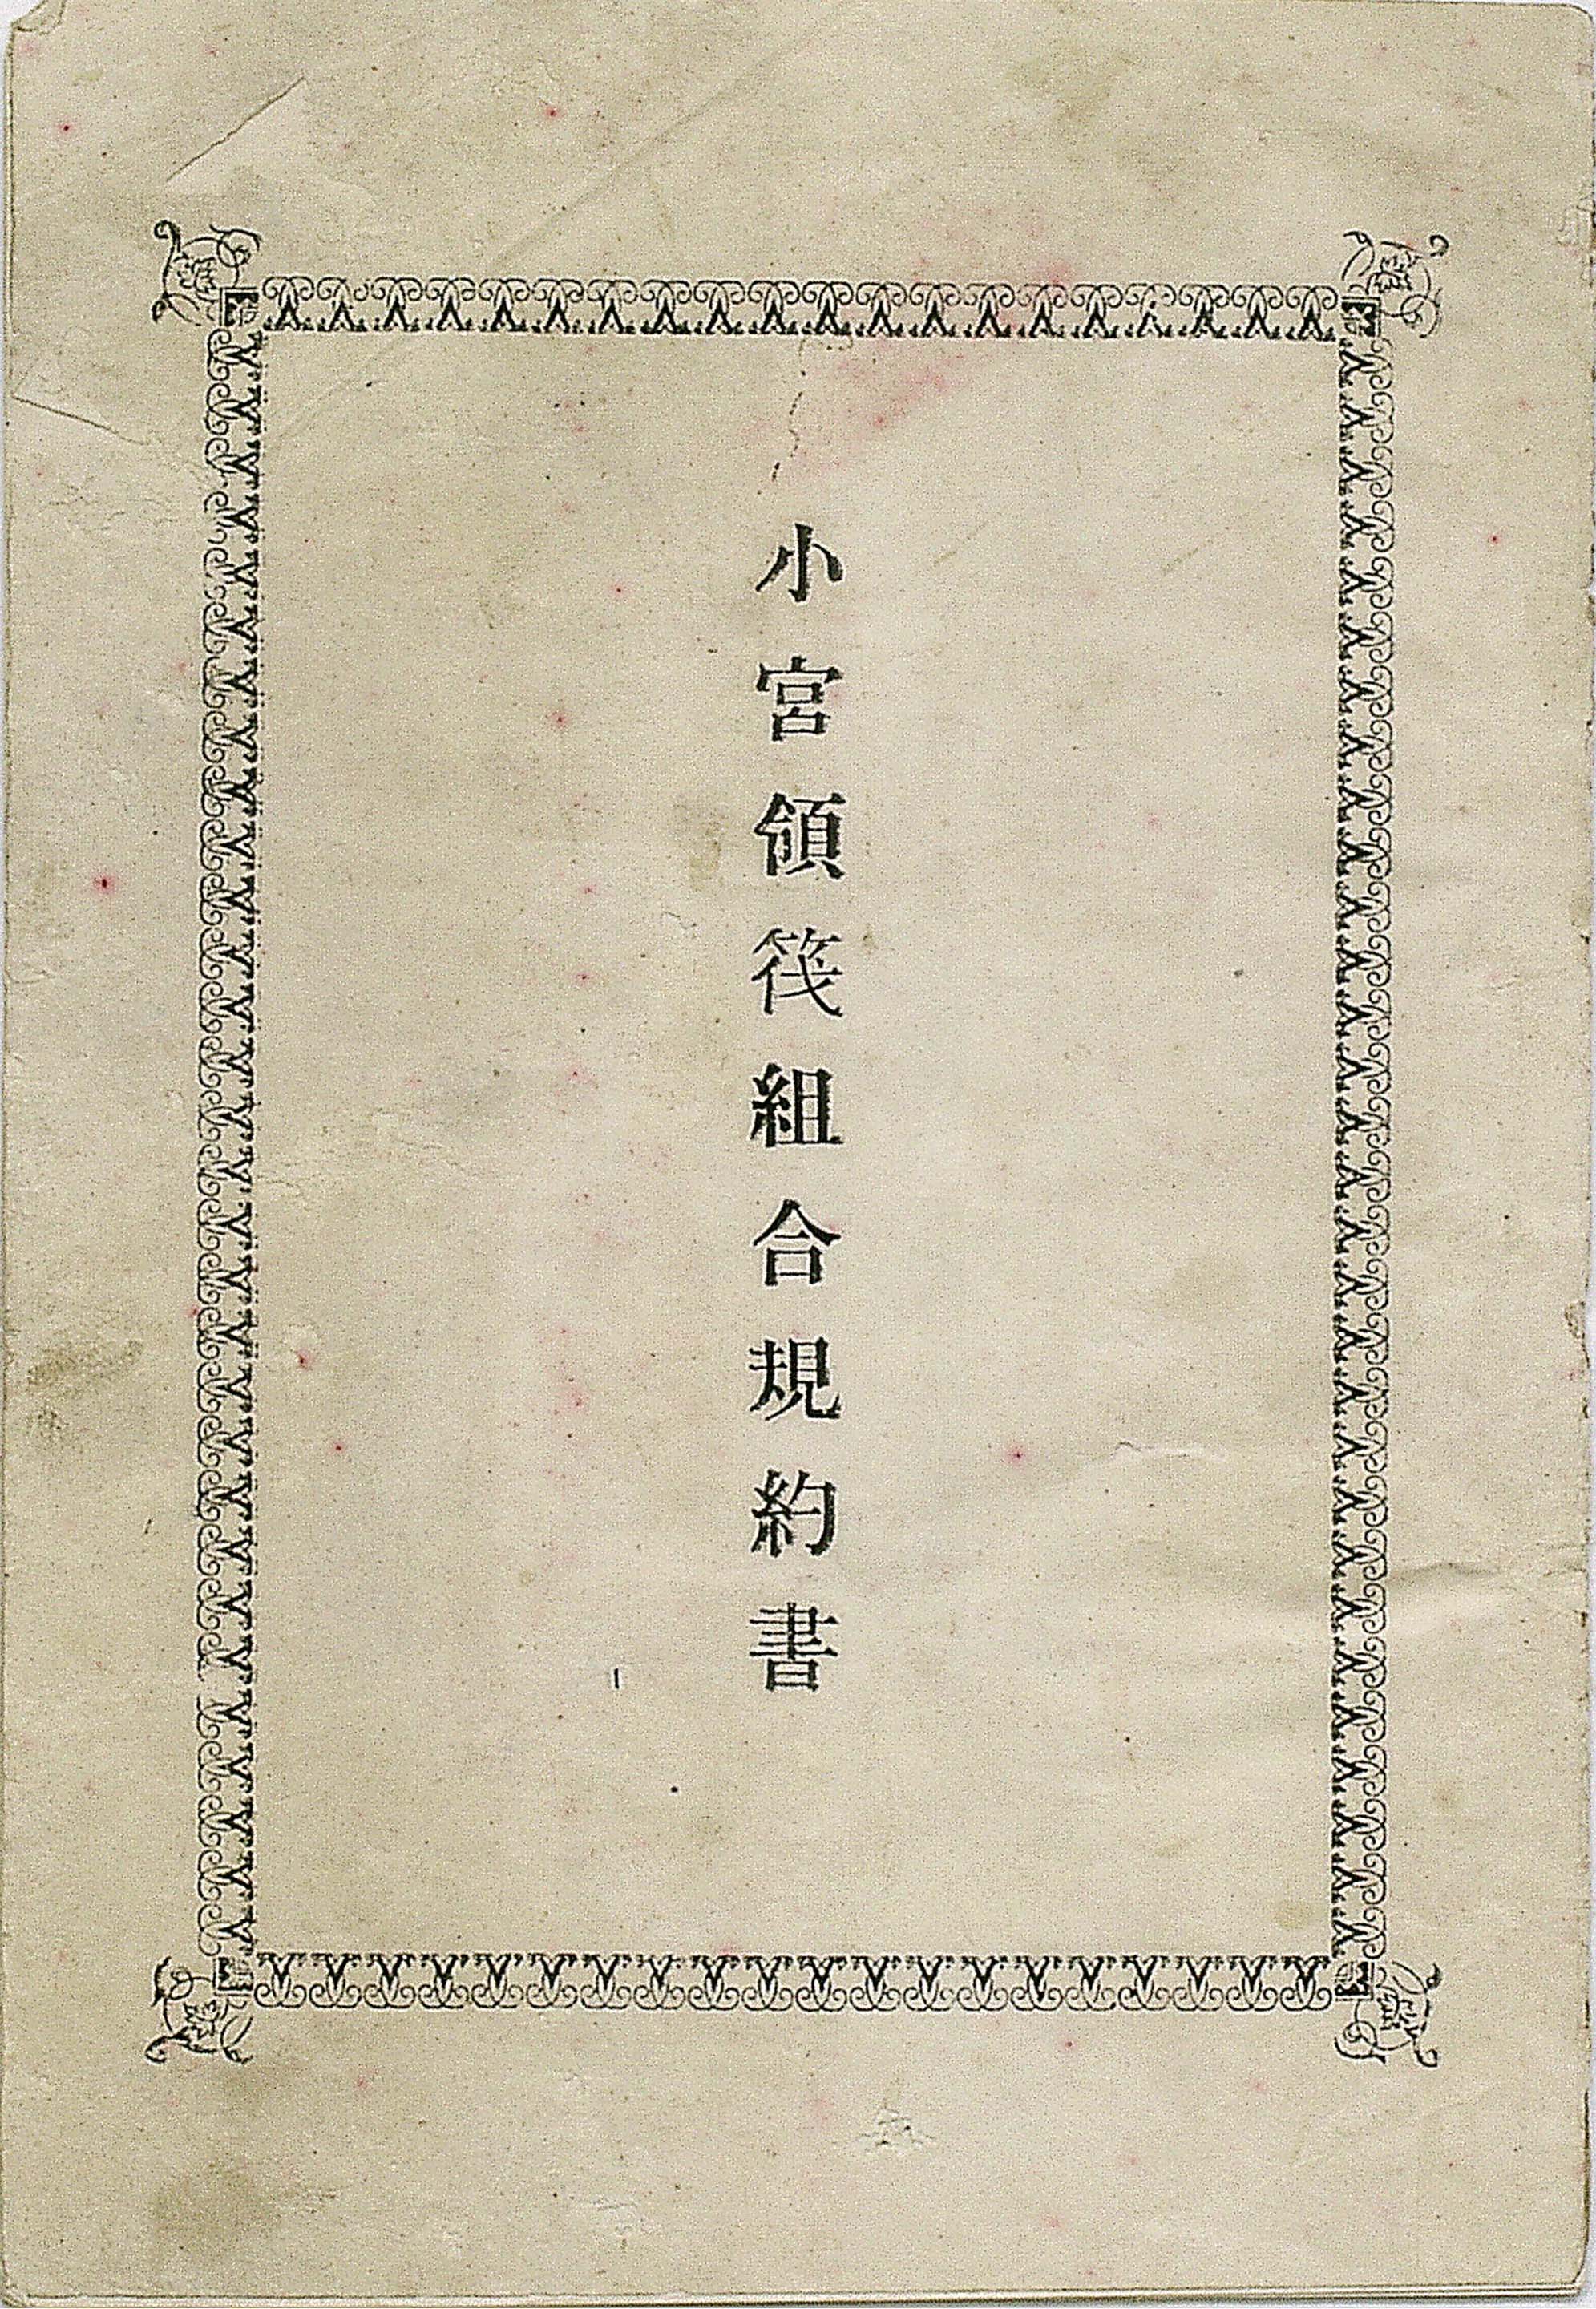 小宮領筏組合規約書